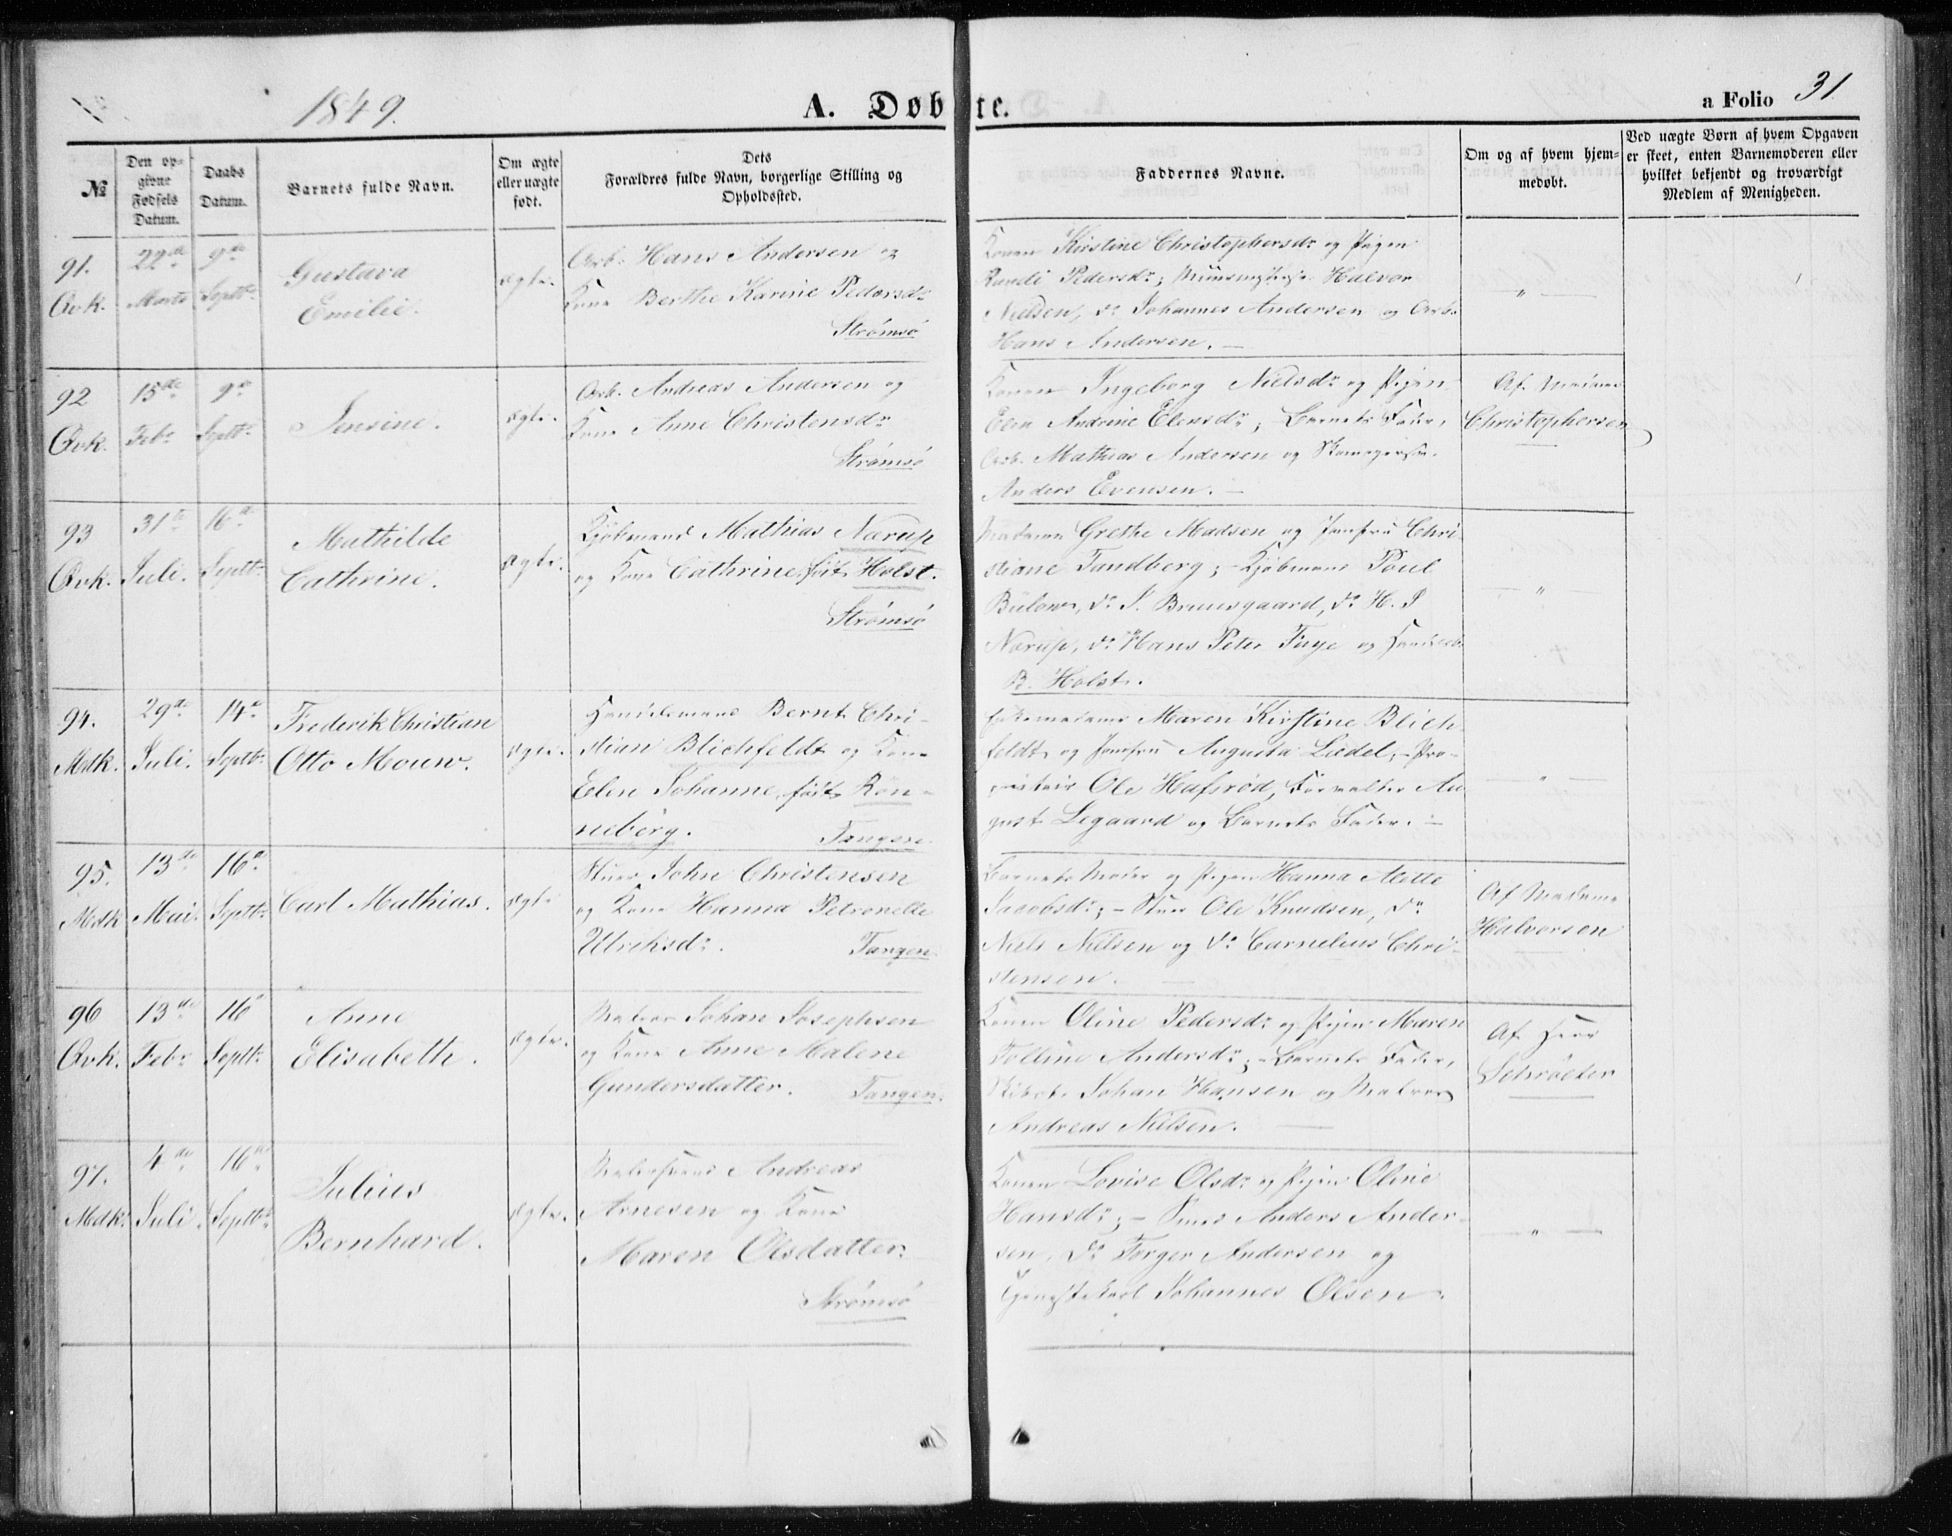 1849.
A. Døbte.
a Folio 31
№
Den op-
givne
Fødsels
Datum.
Daabs
Datum.
Barnets fulde Navn.
Om ægte
eller uægte
født.
Dets
Forældres fulde Navn, borgerlige Stilling og
Opholdssted.
Faddernes Navne.
Om og af hvem hjem-
medøbt.
Ved uægte Børn af hvem Opgaven
er skeet, enten Barnemoderen eller
hvilket bekjendt og troværdigt
Medlem af Menigheden.
91.
Qvk.
22de
Marts
9de
Septbr
Gustava
Emilie.
ægte.
Arb. Hans Andersen og
Kone Berthe Karine Pedersdr
Strømsø
Konen Kirstine Christophersdr og Pigen
Randi Pedersdr; Halvor
Nielsen, do Johannes Andersen og Arb.
Hans Andersen. —
— " —
92
Qvk.
15de
Febr
9de
Septbr
Jensine.
ægte.
Arb. Andreas Andersen og
Kone Anne Christensdr
Strømsø
Konen Ingeborg Nielsdr og Pigen
Elen Andrine Elensdr; Barnets Fader,
Arb. Mathias Andersen og
Anders Evensen. —
Af Madame
Christophersen
93
Qvk.
31te
Juli.
16de
Septbr
Mathilde
Cathrine.
ægte.
Kjøbmand Mathias Nærup
og Kone Cathrine, født Holst.
Strømsø
Madame Grethe Madsen og Jomfru Chri-
stiane Tandberg; – Kjøbmand Poul
Bülow, do S. Bruusgaard, do H. P
Nærup, do Hans Peter Faye og
B. Holst.
— " —
94.
Mdk.
29de
Juli.
14de
Septbr
Frederik Christian
Otto Mouw.
ægte.
Handelsmand Bernt Chri-
stian Blichfeldt og Kone
Elen Johanne, født Rön-
neberg.
Tangen.
Maren Kirstine Blich-
feldt og Jomfru Augusta Lüdel, – Pro-
prietair Ole Hafsrød, Forvalter Au-
gust Legaard og Barnets Fader. —
— " —
95.
Mdk
13de
Mai.
16de
Septbr
Carl Mathias.
ægte
Stuer John Christensen
og Kone Hanna Petronelle
Ulriksdr.
Tangen.
Barnets Moder og Pigen Hanna Mette
Jacobsdr; – Stuer Ole Knudsen, do
Niels Nielsen og do Carnelius Chri-
stensen. —
Af Madame
Halvorsen
96
Qvk.
13de
Febr
16de
Septbr
Anne
Elisabeth.
ægte.
Matros Johan Josephsen
og Kone Anne Malene
Gundersdatter.
Tangen.
Konen Oline Pedersdr og Pigen Maren
Tolline Andersdr; – Barnets Fader,
Johan Hansen og Matros
Andreas Nielsen. —
Af Herr
Schröeter
97.
Mdk.
4de
Juli.
16de
Septbr
Julius
Bernhard.
ægte.
Andreas
Arnesen og Kone
Maren Olsdatter.
Strømsø
Konen Lovise Olsdr og Pigen Oline
Hansdr; – Anders Ander-
sen, do Torger Andersen og
Johannes Olsen.
— " —